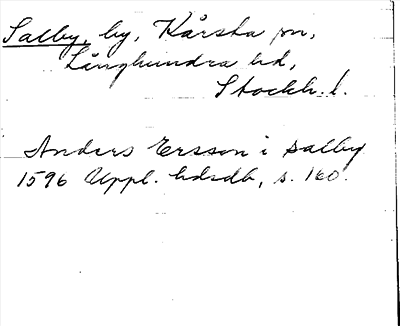 Salby, by, Kårsta sn,
Långhundra hd,
Stockh. l.
Anders Ersson i Salby
1596 Uppl. hdrdb, s. 160.